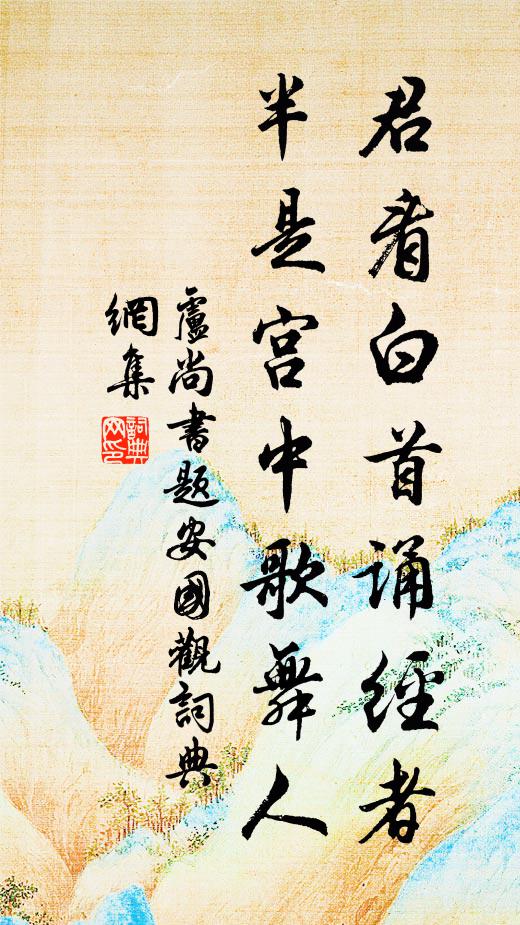 君看白首誦經者
半是宫中歌舞人
盧尚書題安國觀詞典
網集
詞典
网印